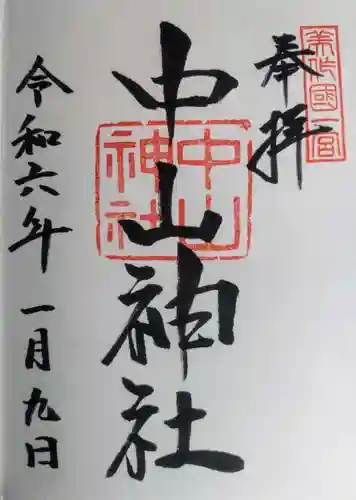 美作國一宮
奉拝
中山神社
中山神社
令和六年一月九日